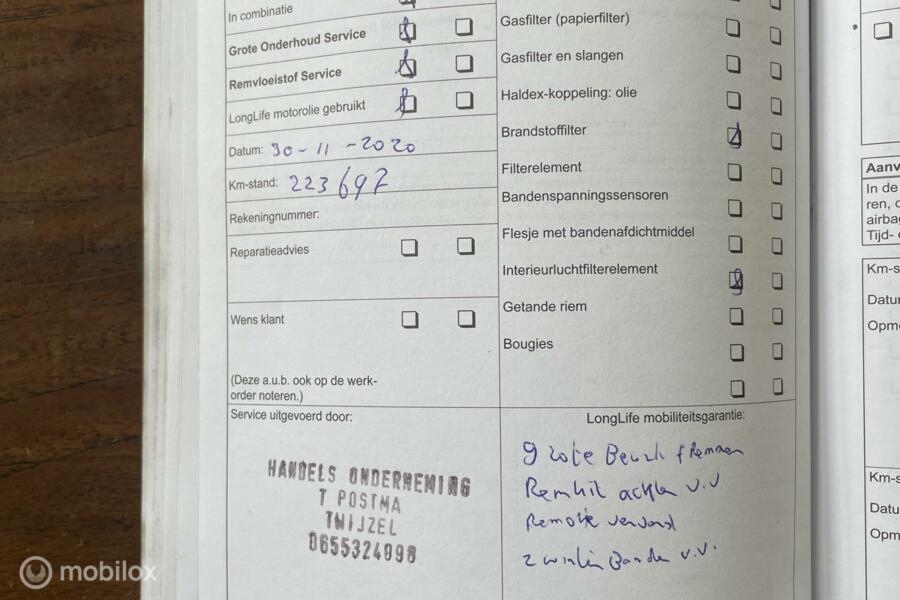 In combinatie
Grote Onderhoud Service
Remvloeistof Service
LongLife motorolie gebruikt
Datum: 30-11-2020
Km-stand: 223697
Rekeningnummer:
Reparatieadvies
Wens klant
(Deze a.u.b. ook op de werk-
order noteren.)
Service uitgevoerd door:
HANDELS ONDERNEMING
T POSTMA
TWIJZEL
0655324998
Gasfilter (papierfilter)
Gasfilter en slangen
Haldex-koppeling: olie
Brandstoffilter
Filterelement
Bandenspanningssensoren
Flesje met bandenafdichtmiddel
Interieurluchtfilterelement
Getande riem
Bougies
LongLife mobiliteitsgarantie:
grote Beurt
achter v.v
2 winter Banden v.v.
Aanv
In de
ren, o
airba
Tijd-
Km-s
Datu
Opm
Km-s
Datu
Opm
mobilox